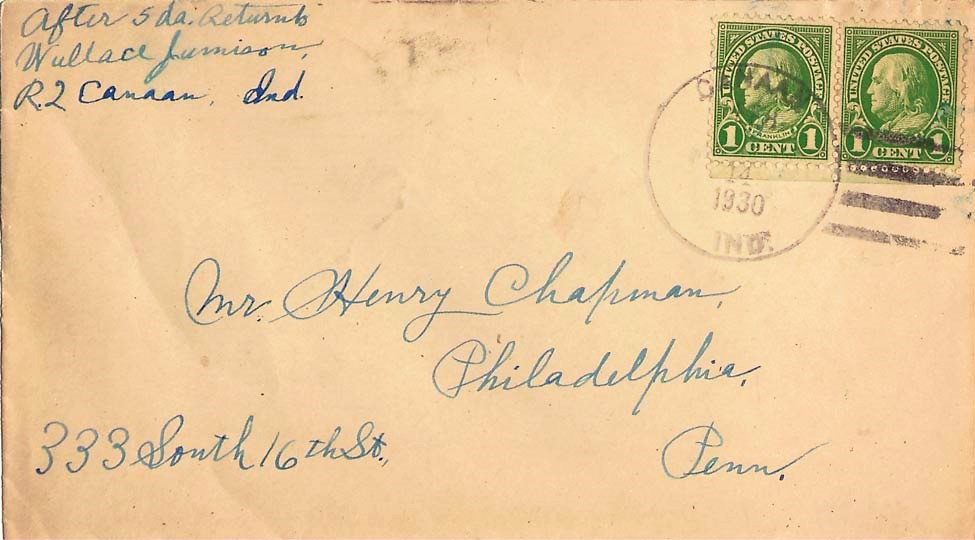 After 5 da. Return to
Wallace Jumison,
R.2 Canaan, Ind.
UNITED STATES POSTAGE
FRANKLIN
1 CENT 1
UNITED STATES POSTAGE
1 CENT 1
14
1930
IND.
Mr. Henry Chapman,
Philadelphia,
333 South 16th St.,
Penn.